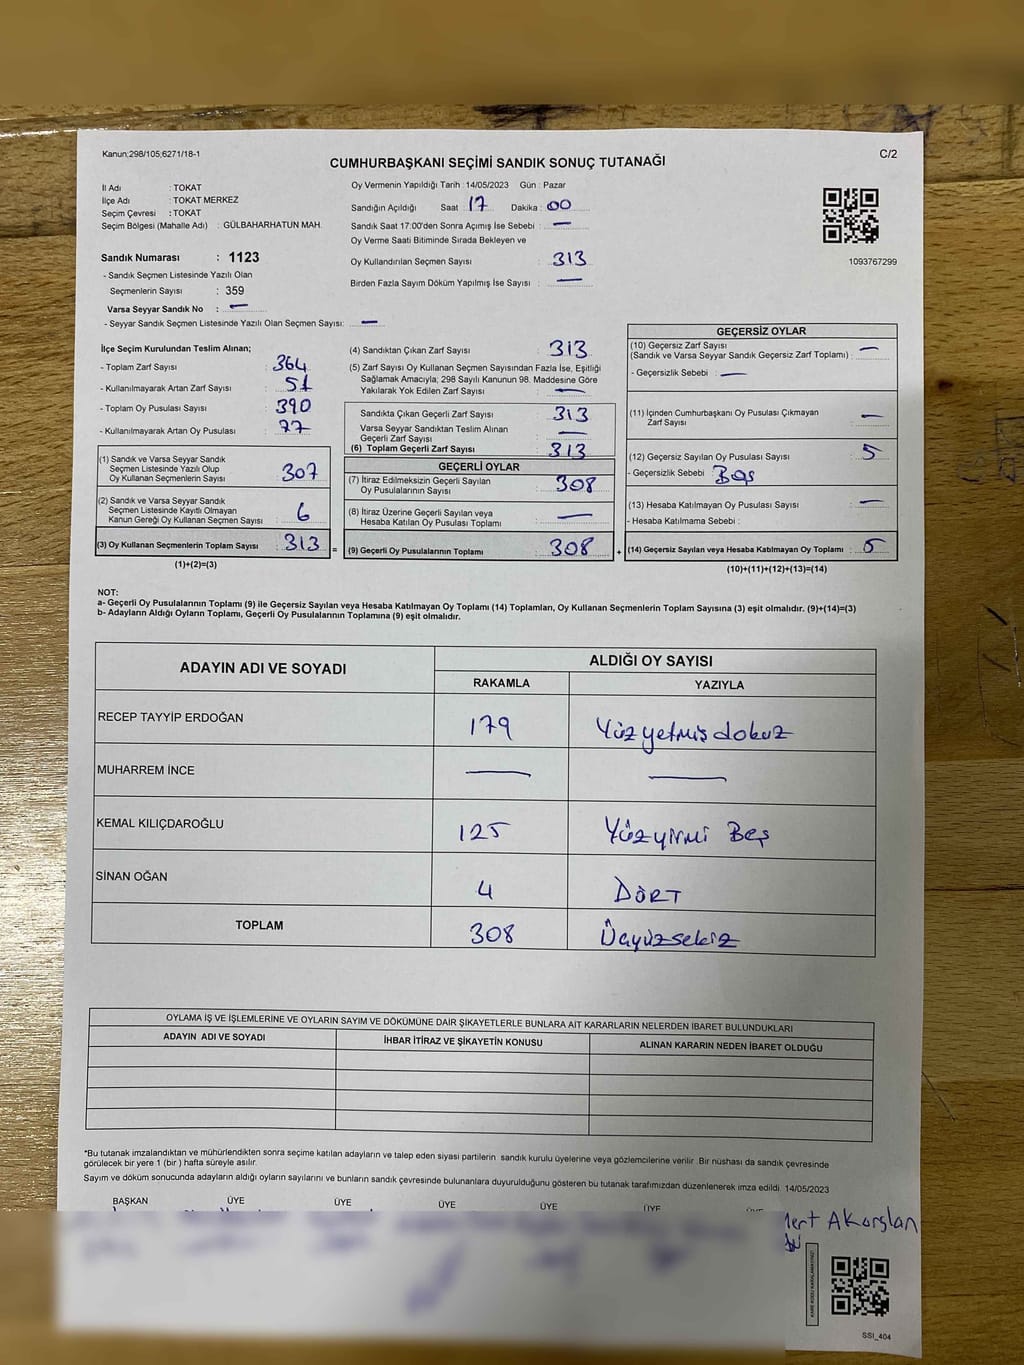 Kanun;298/105;6271/18-1
CUMHURBAŞKANI SEÇİMİ SANDIK SONUÇ TUTANAĞI
C/2
İl Adı : TOKAT
İlçe Adı : TOKAT MERKEZ
Seçim Çevresi : TOKAT
Seçim Bölgesi (Mahalle Adı) : GÜLBAHARHATUN MAH.
Sandık Numarası : 1123
- Sandık Seçmen Listesinde Yazılı Olan
Seçmenlerin Sayısı : 359
Varsa Seyyar Sandık No : —
- Seyyar Sandık Seçmen Listesinde Yazılı Olan Seçmen Sayısı: —
Oy Vermenin Yapıldığı Tarih : 14/05/2023 Gün : Pazar
Sandığın Açıldığı Saat : 17 Dakika : 00
Sandık Saat 17:00'den Sonra Açımış İse Sebebi : —
Oy Verme Saati Bitiminde Sırada Bekleyen ve
Oy Kullandırılan Seçmen Sayısı : 313
Birden Fazla Sayım Döküm Yapılmış İse Sayısı : —
1093767299
İlçe Seçim Kurulundan Teslim Alınan;
- Toplam Zarf Sayısı : 364
- Kullanılmayarak Artan Zarf Sayısı : 51
- Toplam Oy Pusulası Sayısı : 390
- Kullanılmayarak Artan Oy Pusulası : 77
(1) Sandık ve Varsa Seyyar Sandık
Seçmen Listesinde Yazılı Olup
Oy Kullanan Seçmenlerin Sayısı : 307
(2) Sandık ve Varsa Seyyar Sandık
Seçmen Listesinde Kayıtlı Olmayan
Kanun Gereği Oy Kullanan Seçmen Sayısı : 6
(3) Oy Kullanan Seçmenlerin Toplam Sayısı : 313 =
(1)+(2)=(3)
(4) Sandıktan Çıkan Zarf Sayısı : 313
(5) Zarf Sayısı Oy Kullanan Seçmen Sayısından Fazla İse, Eşitliği
Sağlamak Amacıyla; 298 Sayılı Kanunun 98. Maddesine Göre
Yakılarak Yok Edilen Zarf Sayısı : —
Sandıkta Çıkan Geçerli Zarf Sayısı : 313
Varsa Seyyar Sandıktan Teslim Alınan
Geçerli Zarf Sayısı : —
(6) Toplam Geçerli Zarf Sayısı : 313
GEÇERLİ OYLAR
(7) İtiraz Edilmeksizin Geçerli Sayılan
Oy Pusulalarının Sayısı : 308
(8) İtiraz Üzerine Geçerli Sayılan veya
Hesaba Katılan Oy Pusulası Toplamı : —
(9) Geçerli Oy Pusulalarının Toplamı : 308 +
GEÇERSİZ OYLAR
(10) Geçersiz Zarf Sayısı
(Sandık ve Varsa Seyyar Sandık Geçersiz Zarf Toplamı) : —
- Geçersizlik Sebebi : —
(11) İçinden Cumhurbaşkanı Oy Pusulası Çıkmayan
Zarf Sayısı : —
(12) Geçersiz Sayılan Oy Pusulası Sayısı : 5
- Geçersizlik Sebebi : Boş
(13) Hesaba Katılmayan Oy Pusulası Sayısı : —
- Hesaba Katılmama Sebebi :
(14) Geçersiz Sayılan veya Hesaba Katılmayan Oy Toplamı : 5
(10)+(11)+(12)+(13)=(14)
NOT:
a- Geçerli Oy Pusulalarının Toplamı (9) ile Geçersiz Sayılan veya Hesaba Katılmayan Oy Toplamı (14) Toplamları, Oy Kullanan Seçmenlerin Toplam Sayısına (3) eşit olmalıdır. (9)+(14)=(3)
b- Adayların Aldığı Oyların Toplamı, Geçerli Oy Pusulalarının Toplamına (9) eşit olmalıdır.
ADAYIN ADI VE SOYADI
ALDIĞI OY SAYISI
RAKAMLA YAZIYLA
RECEP TAYYİP ERDOĞAN 179 Yüzyetmişdokuz
MUHARREM İNCE — —
KEMAL KILIÇDAROĞLU 125 Yüzyirmi Beş
SİNAN OĞAN 4 DÖRT
TOPLAM 308 Üçyüzsekiz
OYLAMA İŞ VE İŞLEMLERİNE VE OYLARIN SAYIM VE DÖKÜMÜNE DAİR ŞİKAYETLERLE BUNLARA AİT KARARLARIN NELERDEN İBARET BULUNDUKLARI
ADAYIN ADI VE SOYADI İHBAR İTİRAZ VE ŞİKAYETİN KONUSU ALINAN KARARIN NEDEN İBARET OLDUĞU
*Bu tutanak imzalandıktan ve mühürlendikten sonra seçime katılan adayların ve talep eden siyasi partilerin sandık kurulu üyelerine veya gözlemcilerine verilir. Bir nüshası da sandık çevresinde
görülecek bir yere 1 (bir) hafta süreyle asılır.
Sayım ve döküm sonucunda adayların aldığı oyların sayılarını ve bunların sandık çevresinde bulunanlara duyurulduğunu gösteren bu tutanak tarafımızdan düzenlenerek imza edildi. 14/05/2023
BAŞKAN ÜYE ÜYE ÜYE ÜYE ÜYE ÜYE
Mert Akarslan
SSI_404